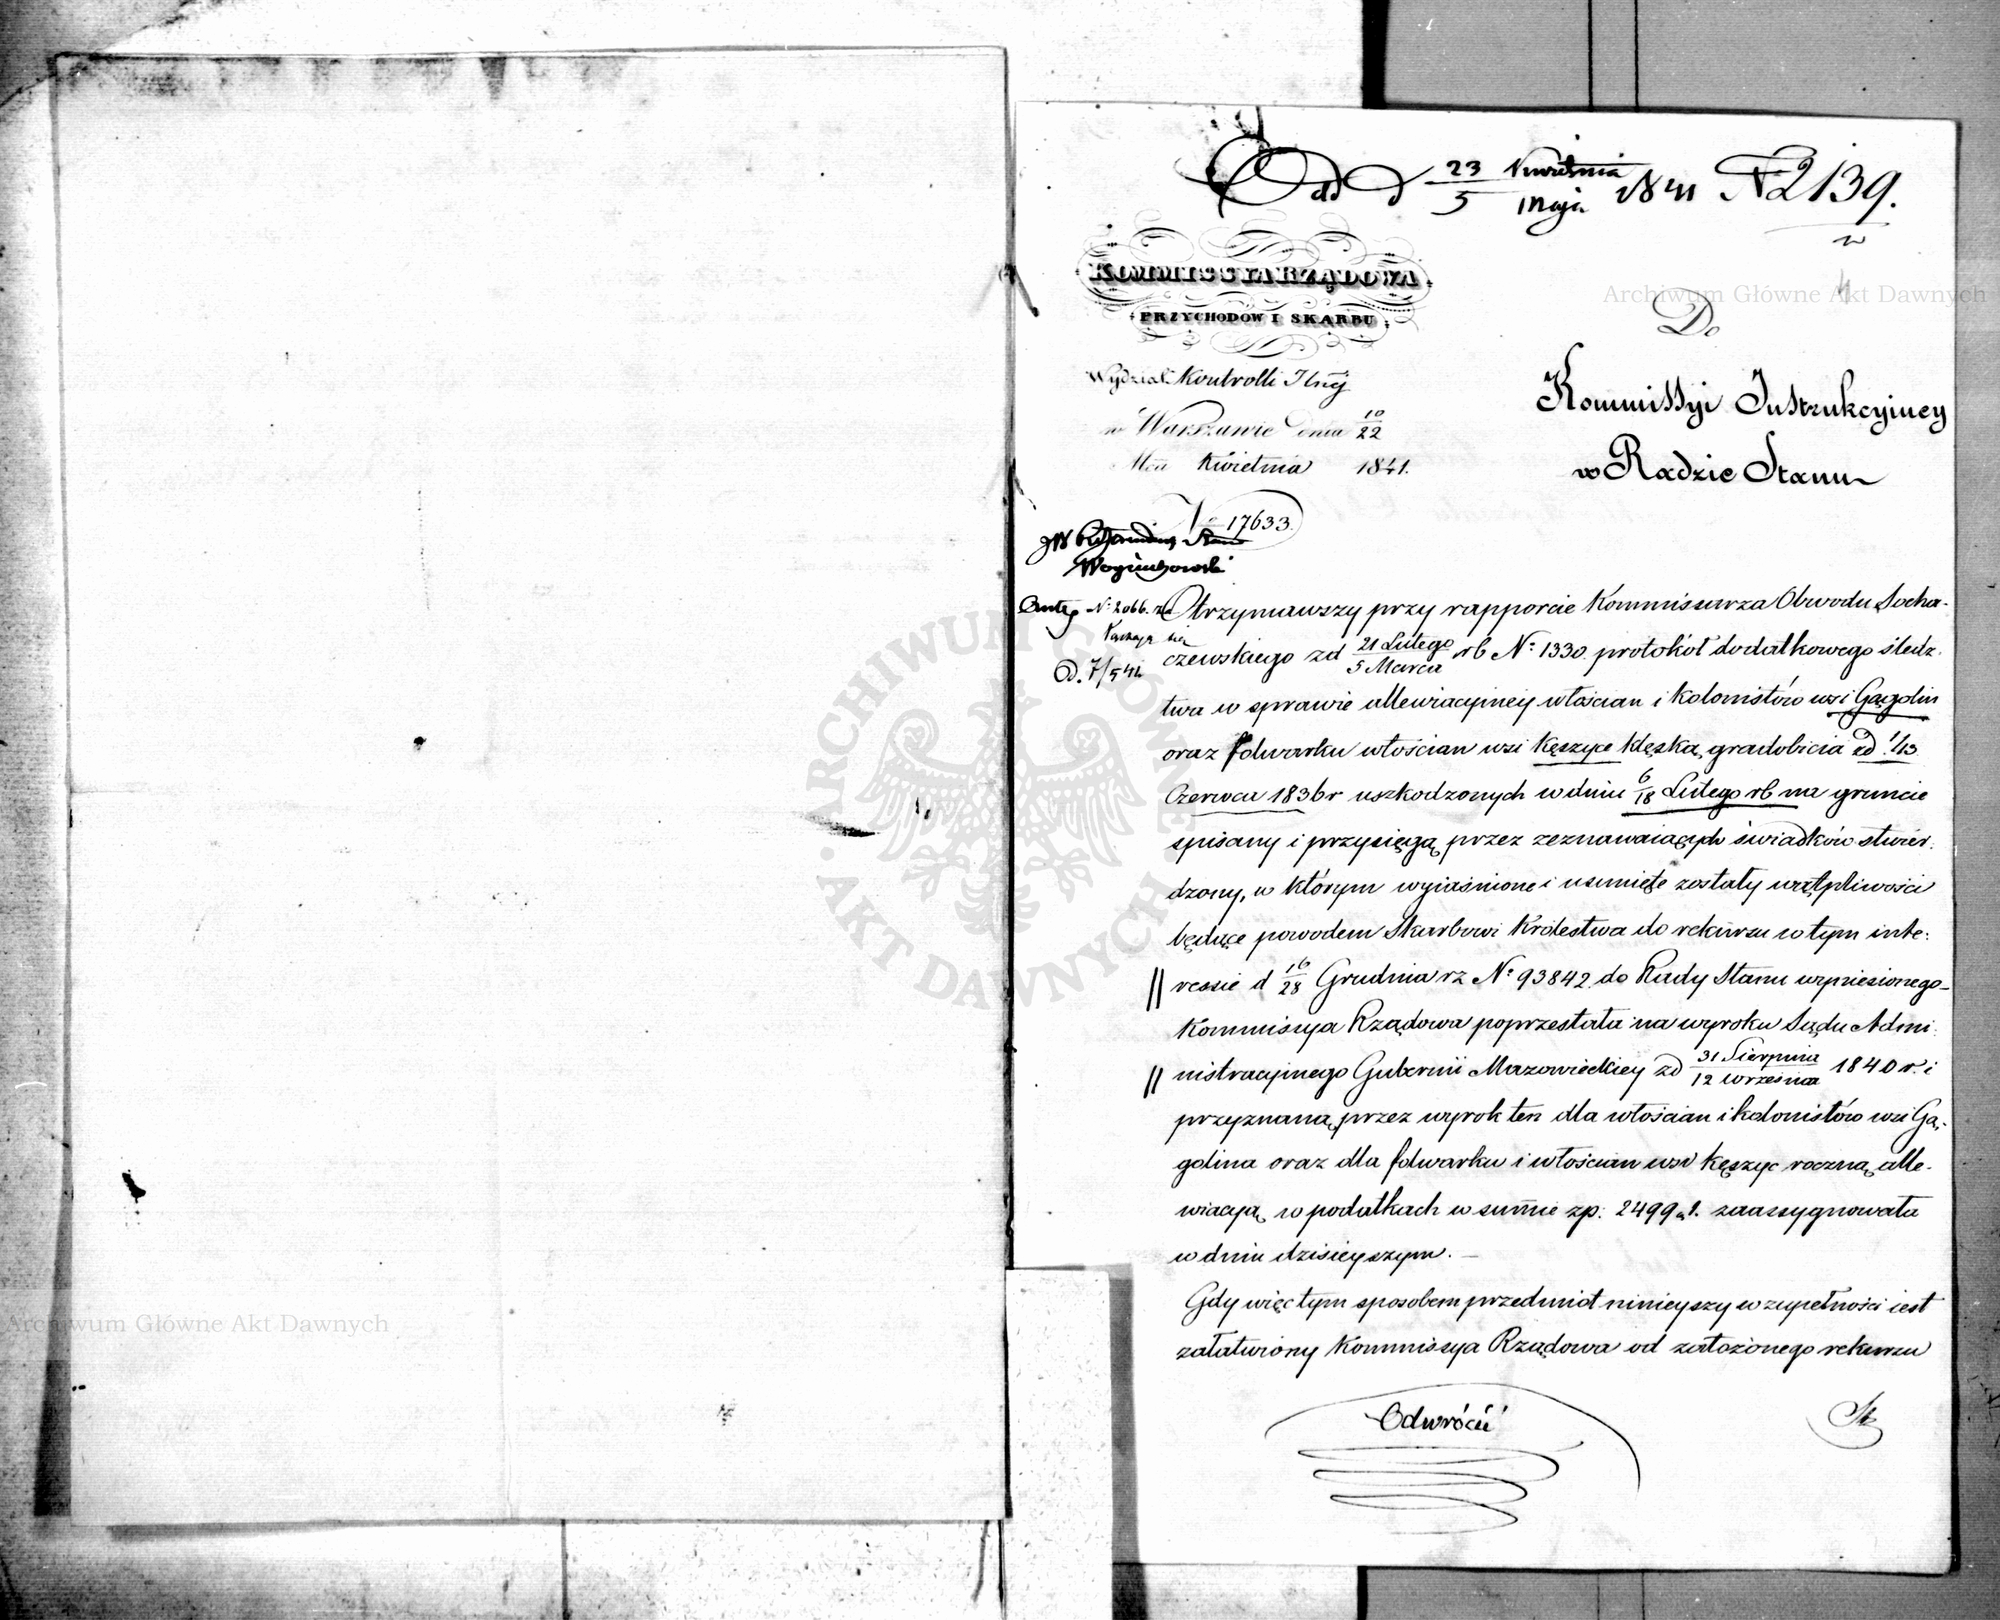 Odd d 23/5 Kwietnia/Maja 1841 N 2139.
KOMMISSYA RZĄDOWA
PRZYCHODÓW I SKARBU
Archiwum Główne Akt Dawnych
Do
Kommissyi Instrukcyiney
w Radzie Stanu
Wydział Kontrolli Jlnéj
w Warszawie dnia 10/22
Mca Kwietnia 1841.
No 17633.
JW Stanu
Wojciechowski
N: 2066.
Od. 7/5 41
Otrzymawszy przy rapporcie Kommissarza Obwodu Socha-
czewskiego zd 21 Lutego/5 Marca rb N: 1330. protokół dodatkowego śledz-
twa w sprawie allewiacyiney włościan i kolonistów wsi Gągolin
oraz folwarku włościan wsi Kęszyce klęską gradobicia zd 1/13
Czerwca 1836 r uszkodzonych w dniu 6/18 Lutego rb na gruncie
spisany i przysięgą przez zeznawaiących świadków stwier-
dzony, w którym wyiaśnione i usunięte zostały wątpliwości
będące powodem Skarbowi Królestwa do rekursu w tym inte-
ressie d 16/28 Grudnia rz N: 93842. do Rady Stanu wyniesionego-
Kommissya Rządowa poprzestała na wyroku Sądu Admi-
nistracyinego Gubernii Mazowieckiey zd 31 Sierpnia/12 Września 1840 r. i
przyznaną przez wyrok ten dla włościan i kolonistów wsi Gą-
golina oraz dla folwarku i włościan wsi Kęszyc roczną alle-
wiacyą w podatkach w summie zp. 2499 g 1. zaassygnowała
w dniu dzisieyszym.—
Gdy więc tym sposobem przedmiot ninieyszy w zupełności iest
załatwiony Kommissya Rządowa od założonego rekursu
Odwróćić
ARCHIWUM GŁÓWNE
AKT DAWNYCH
Archiwum Główne Akt Dawnych